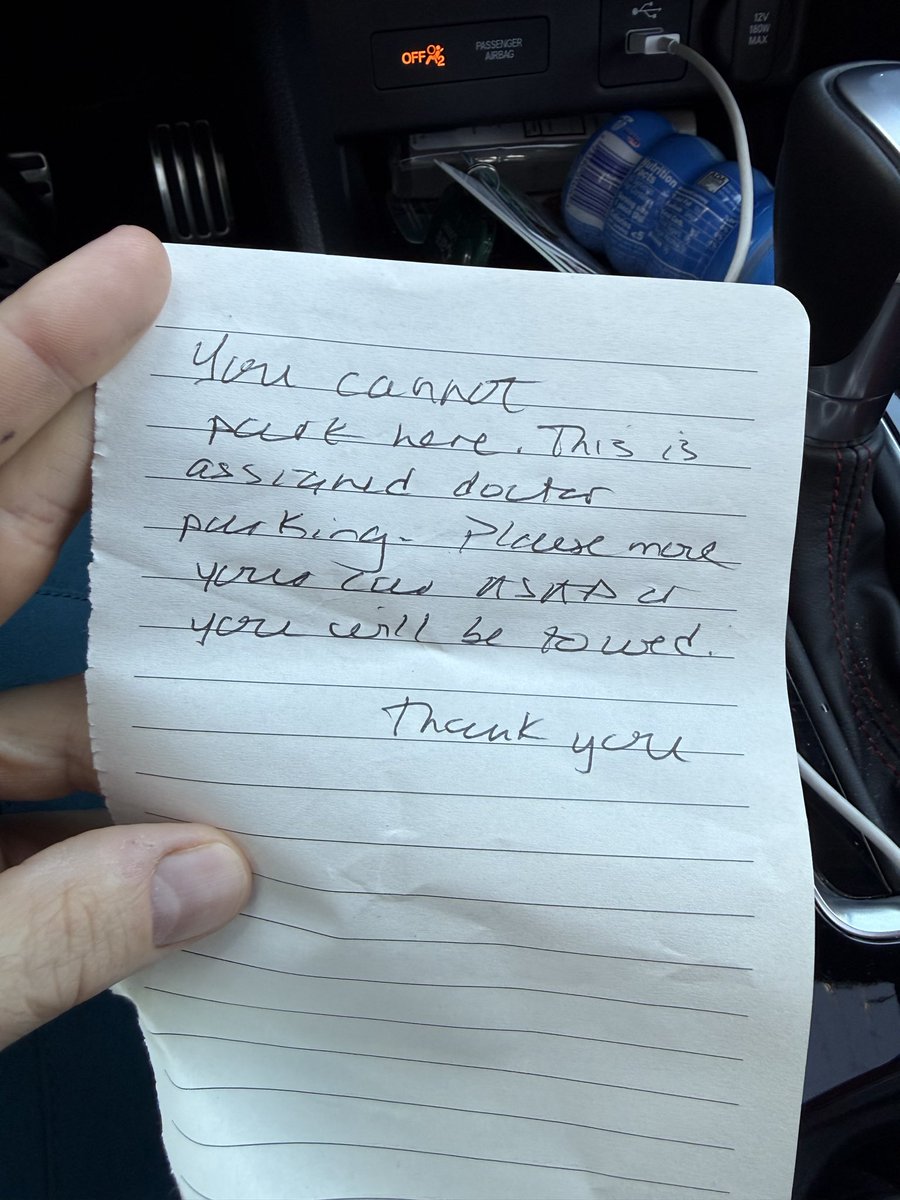 OFF 2
PASSENGER
AIRBAG
12V
180W
MAX
Nutrition
Facts
You cannot
park here. This is
assigned doctor
parking. Please move
your car ASAP or
you will be towed.
Thank you